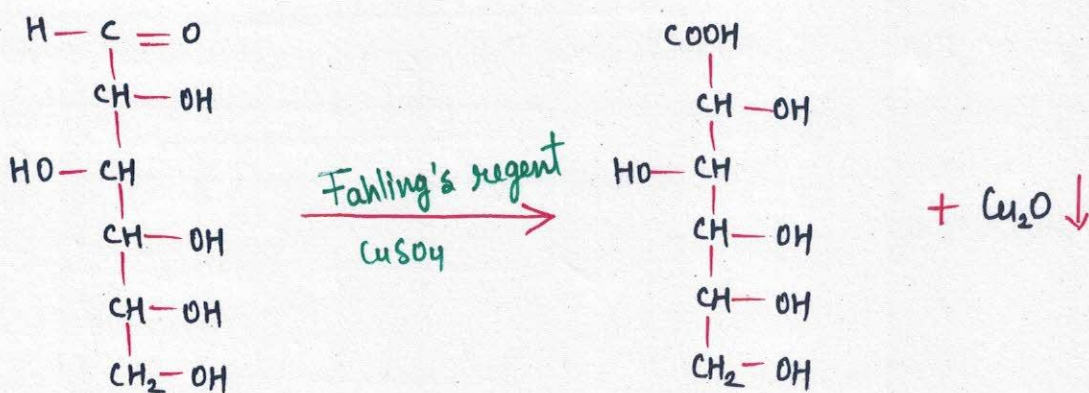 H — C = O
CH — OH
HO — CH
CH — OH
CH — OH
CH₂ — OH
Fahling's regent
CuSO4
COOH
CH — OH
HO — CH
CH — OH
CH — OH
CH₂ — OH
+ Cu₂O ↓